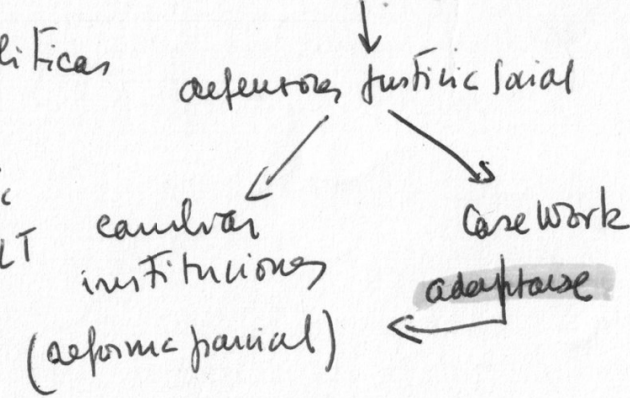 líticas
defensores justicia social
cambiar
instituciones
(reforma parcial)
LT
case work
adaptarse